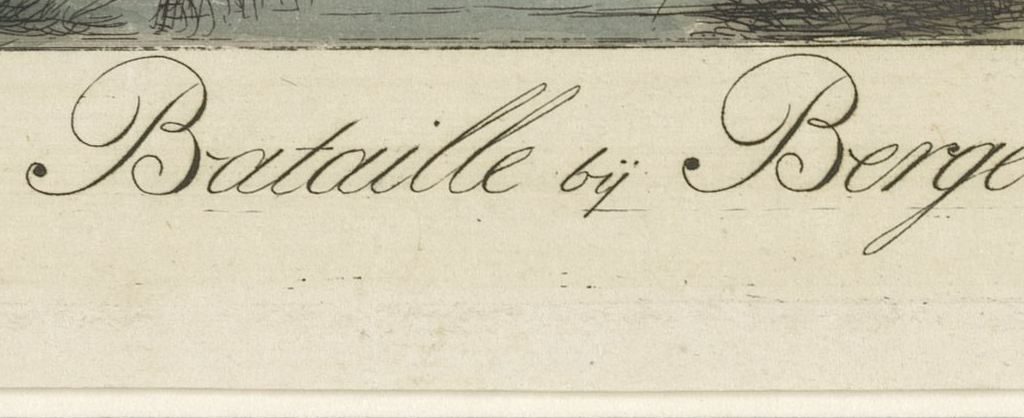 Bataille bij Berge